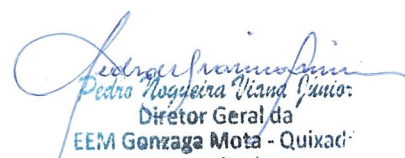 Pedro Nogueira Viana Júnior
Diretor Geral da
EEM Gonzaga Mota - Quixad